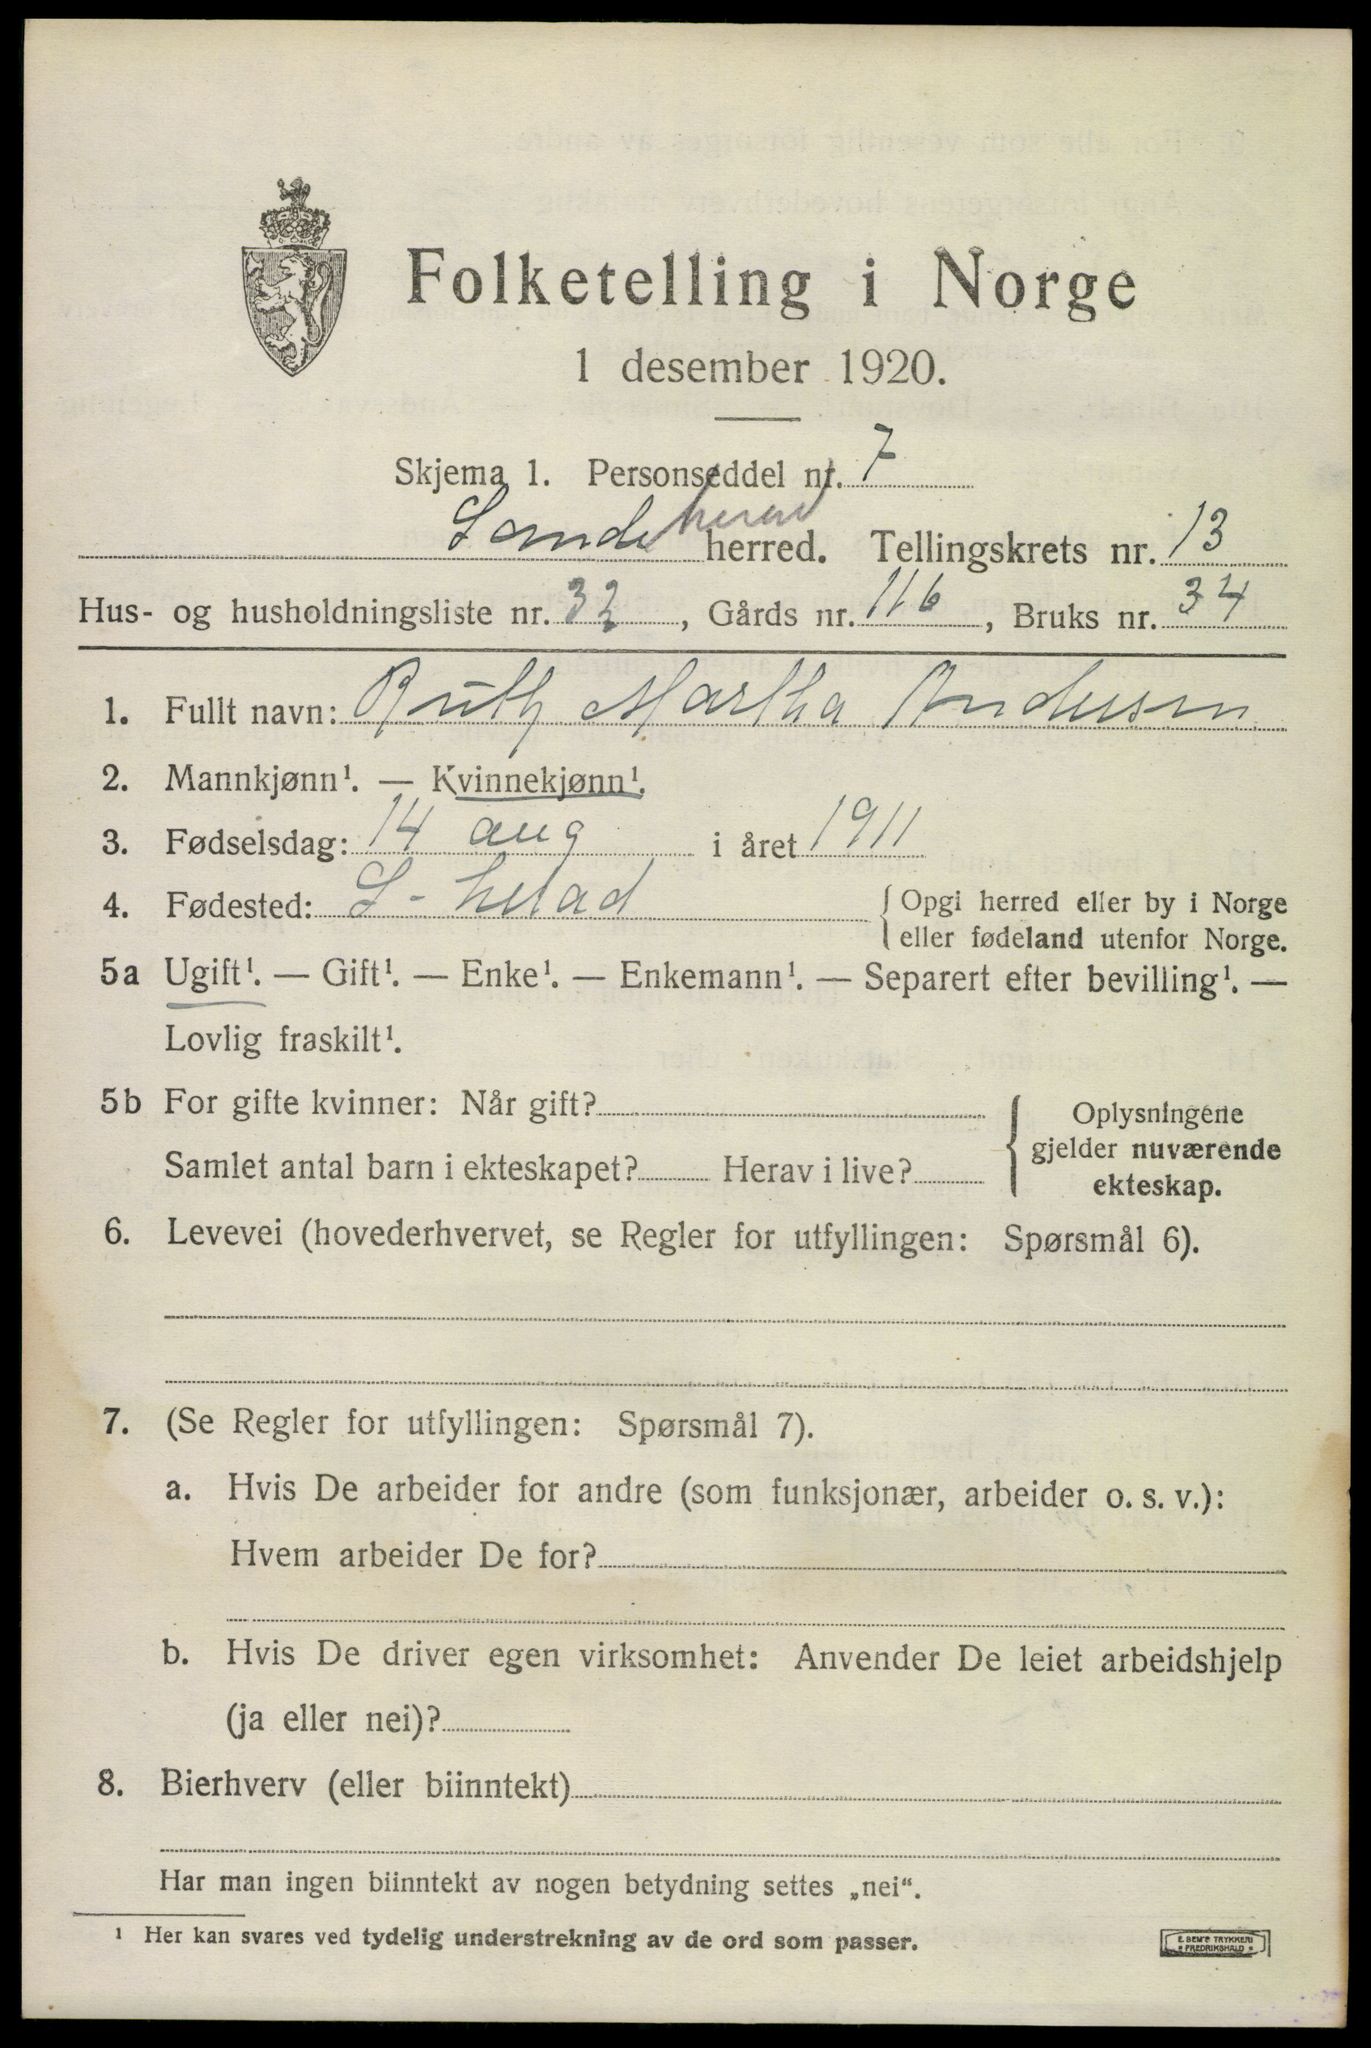 Folketelling i Norge
1 desember 1920.
Skjema 1. Personseddel nr. 7
Sande herad herred. Tellingskrets nr. 13
Hus- og husholdningsliste nr. 32, Gårds nr. 116, Bruks nr. 34
1. Fullt navn: Ruth Martha Andersen
2. Mannkjønn¹. — Kvinnekjønn¹.
3. Fødselsdag: 14 aug i året 1911
4. Fødested: S- herad { Opgi herred eller by i Norge
eller fødeland utenfor Norge.
5a Ugift¹. — Gift¹. — Enke¹. — Enkemann¹. — Separert efter bevilling¹. —
Lovlig fraskilt¹.
5b For gifte kvinner: Når gift? { Oplysningene
gjelder nuværende
Samlet antal barn i ekteskapet? Herav i live?
ekteskap.
6. Levevei (hovederhvervet, se Regler for utfyllingen: Spørsmål 6).
7. (Se Regler for utfyllingen: Spørsmål 7).
a. Hvis De arbeider for andre (som funksjonær, arbeider o. s. v.):
Hvem arbeider De for?
b. Hvis De driver egen virksomhet: Anvender De leiet arbeidshjelp
(ja eller nei)?
8. Bierhverv (eller biinntekt)
Har man ingen biinntekt av nogen betydning settes „nei“.
¹ Her kan svares ved tydelig understrekning av de ord som passer.
E. SEM'S TRYKKERI
* FREDRIKSHALD *